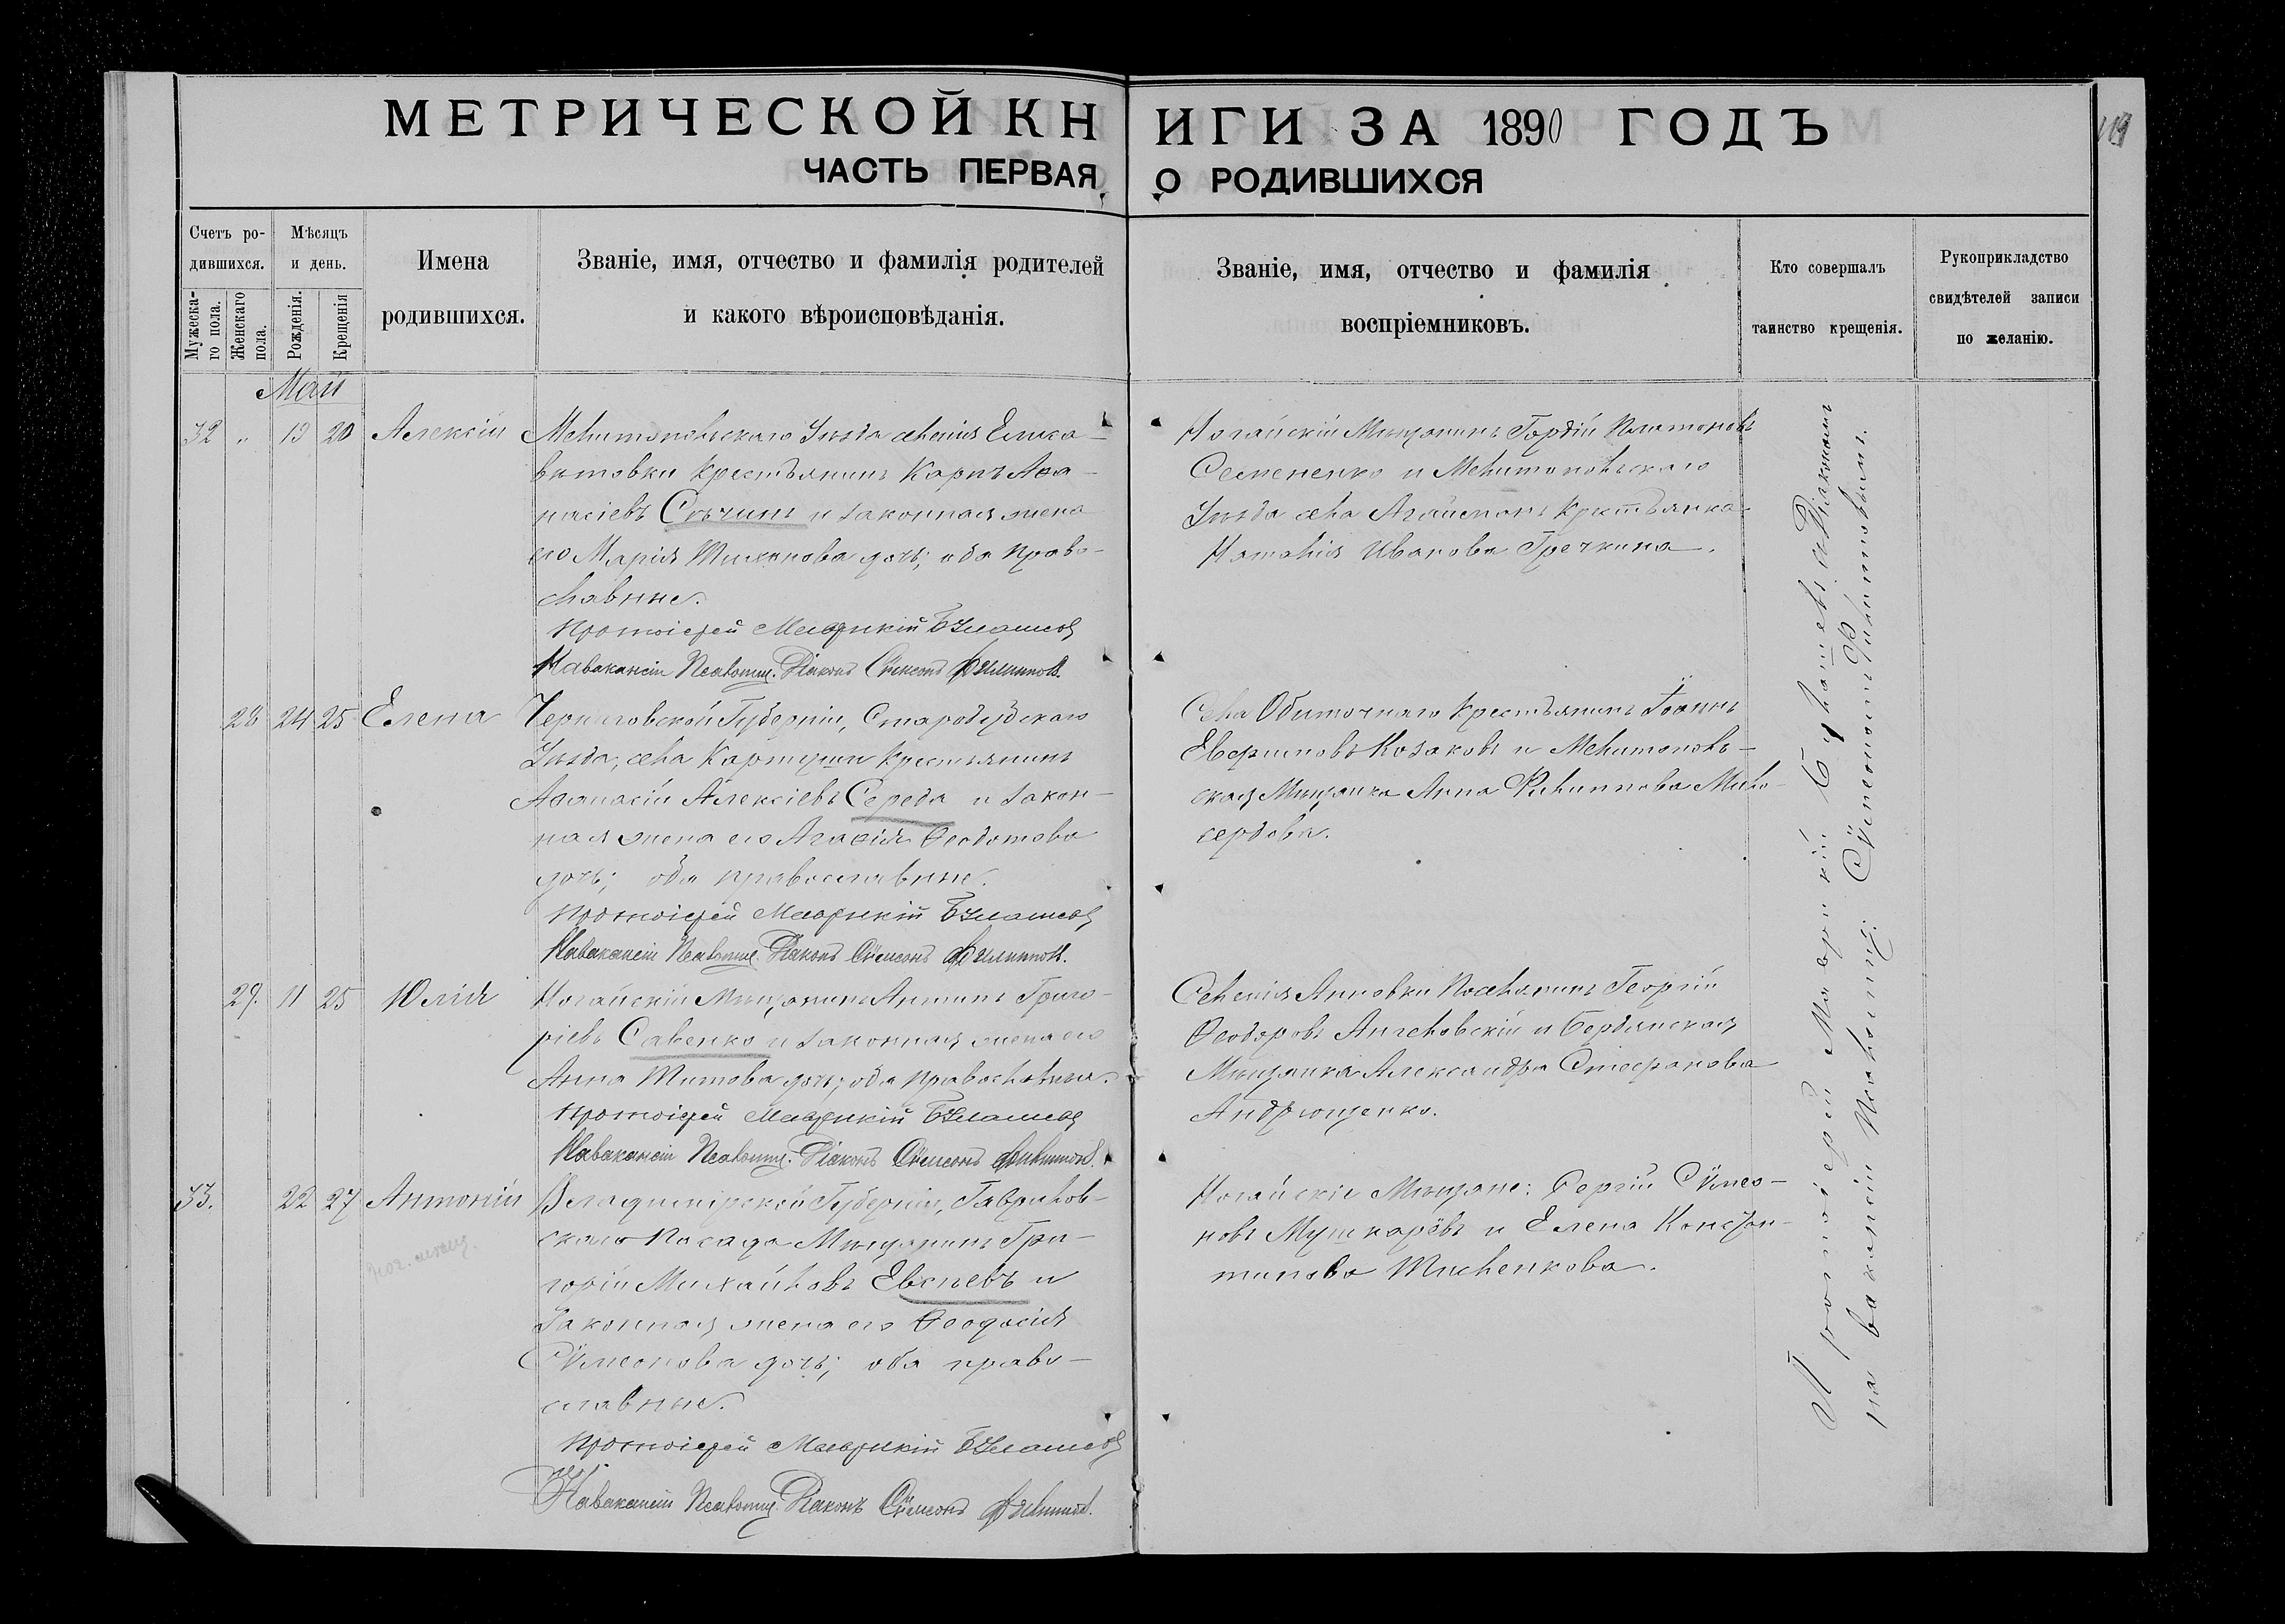 МЕТРИЧЕСКОЙ КНИГИ ЗА 1890 ГОДЪ
ЧАСТЬ ПЕРВАЯ, О РОДИВШИХСЯ
119
Счетъ ро-
дившихся.
Мужеска-
го пола.
Женскаго
пола.
Мѣсяцъ
и день.
Рожденія.
Крещенія
Имена
родившихся.
Званіе, имя, отчество и фамилія родителей
и какого вѣроисповѣданія.
Званіе, имя, отчество и фамилія
воспріемниковъ.
Кто совершалъ
таинство крещенія.
Рукоприкладство
свидѣтелей записи
по желанію.
Май
32 „ 19 20 Алексій
Мелитопольскаго Уѣзда селенія Елиса-
ветовки Крестьянинъ Карпъ Афа-
насіевъ и законная жена
его Марія Тихонова дочь; оба право-
славные.
Протоіерей Маврикій
На вакансіи Псаломщ. Діаконъ Сѵмеонъ Филиповъ.
Ногайскій Мѣщанинъ Гордій Платоновъ
Семененко и Мелитопольскаго
Уѣзда села Агаймонъ Крестьянка
Наталія Иванова Гречкина.
28 24 25 Елена
Черниговской Губерніи, Стародубскаго
Уѣзда, села Картуши Крестьянинъ
Афанасій Алексіевъ Середа и закон-
ная жена его Агафія Ѳеодотова
дочь; оба православные.
Протоіерей Маврикій
На вакансіи Псаломщ. Діаконъ Сѵмеонъ Филиповъ.
Села Обиточнаго Крестьянинъ Іоаннъ
Козаковъ и Мелитополь-
ская Мѣщанка Анна Филиппова Мило-
сердова.
29. 11 25 Юлія
Ногайскій Мѣщанинъ Антинъ Григо-
ріевъ Савенко и законная жена его
Анна Титова дочь; оба православные.
Протоіерей Маврикій
На вакансіи Псаломщ. Діаконъ Сѵмеонъ Филиповъ.
Селенія Анновки Поселянинъ Георгій
Ѳеодоровъ Ангеловскій и Бердянская
Мѣщанка Александра Стефанова
Андрющенко.
33. 22 27 Антоній
ног. мѣщ.
Владимірской Губерніи, Гавриловскаго
Посада Мѣщанинъ Гри-
горій Михайловъ Евсѣевъ и
законная жена его Ѳеодосія
Сѵмеонова дочь; оба право-
славные.
Протоіерей Маврикій
На вакансіи Псаломщ. Діаконъ Сѵмеонъ Филиповъ.
Ногайскіе Мѣщане: Сергій Сѵмео-
новъ Мушкарёвъ и Елена Констан-
тинова Тиленкова.
Протоіерей Маврикій съ Діакономъ
на вакансіи Псаломщ. Сѵмеономъ Филиповымъ.